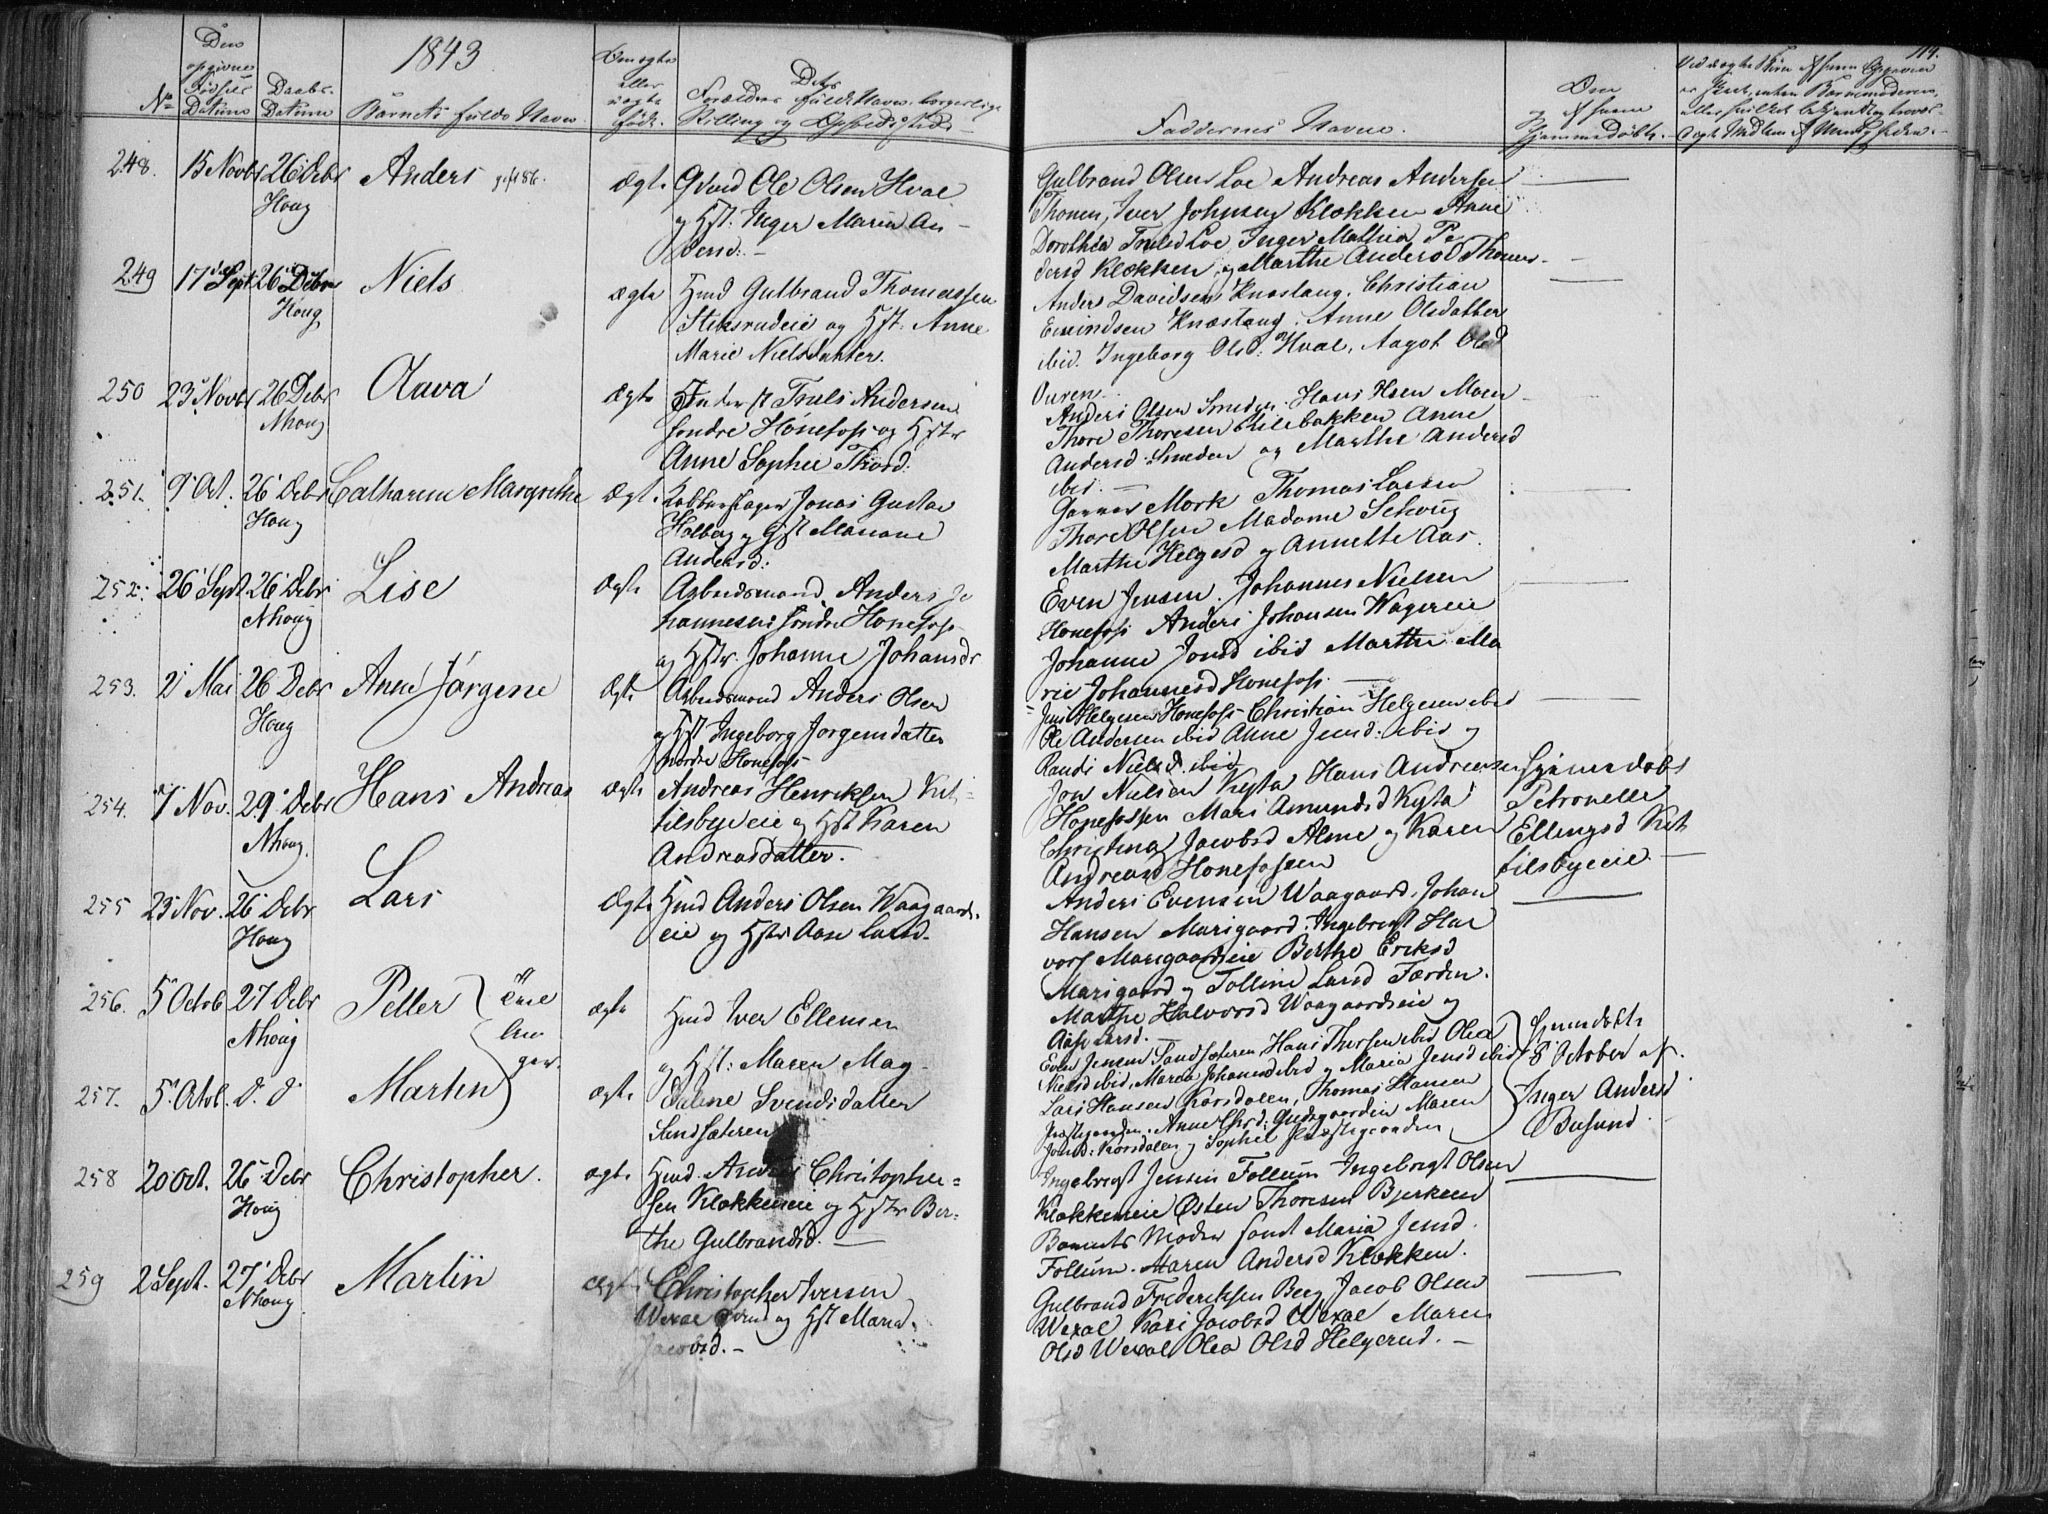 1843
114.
Den opgivne Fødsels Datum
Daabs Datum
No
Barnets fulde Navn
Om ægte eller uægte født.
Forældres fulde Navn, borgerlige
Stilling og Opholdssted
Faddernes Navne.
Om og Af hvem hjemmedøbt.
248. 15 Novbr 26 Debr Anders
Houg
Ægte Gdmd Ole Olsen Hval
og Hst: Inger Maria An-
dersd: -
Gulbrand Olsen Loe Andreas Andersen
Thonen, Iver Johnsen Klækken Anne
Dorothea Trulsd Loe Inger Mathia Pe
dersd Klækken og Marthe Andersd Thonen-
249 17 Sept 26 Debr Niels
Houg
ægte Hmd Gulbrand Thomassen
og Hst: Anne
Marie Nielsdatter.
Anders Davidsen Knæstang. Christian
Evindsen Knæstang. Anne Olsdatter
ibid. Ingeborg Olsd: Hval, Aagot Olsd
250 23 Novbr 26 Debr Olava
Nhoug
Ægte Truls Andersen
søndre Hönefoss og Hstr
Anne Sophie Thord:
Anders Olsen Smeden. Hans Hsen Moen
Thore Thoresen Anne
Andersd: Smeden og Marthe Andersd
ibid. -
251. 9 Oct. 26 Debr Catharine Margrethe
Houg
Ægte Kobberslager Jonas Gustav
Holberg og Hst Mariane
Andersd:
Garver Mork Thomas Larsen
Thore Olsen Madame Schoug
Marthe Helgesd og Annette Aas.
252. 26 Sept 26 Debr Lise
Nhoug
Ægte Arbeidsmand Anders Jo
hannesen søndre Honefoss
og Hstr. Johanne Johansdr
Even Jensen. Johannes Nielsen
Honefoss Anders Johansen Wagereie
Johanne Jonsd ibid Marthe Ma
rie Johannesd Honefoss. -
253. 2 Mai 26 Debr Anne Jörgene
Houg
Ægte Arbeidsmand Anders Olsen
og Hst Ingeborg Jorgensdatter
nordre Honefoss
Jens Helgesen Honefoss Christian Helgesen ibid
Ole Andersen ibid Anne Jensd: ibid og
Randi Nielsd. ibid
254. 7 Nov. 29 Debr Hans Andreas
Nhoug.
Ægte Andreas Henriksen Ket-
tilsbyeeie og Hst Karen
Andreasdatter.
Jon Nielsen Kysta Hans Andreasen
Honefossen Mari Amundsd Kysta
Christina Jacobsd Alme og Karen
Andreasd Honefossen
Hjemmedøbt
Petronelle
Ellingsd Ket
tilsbyeeie. -
255 23 Nov. 26 Debr Lars
Houg
Ægte Hmd Anders Olsen Waagaards.
eie og Hstr Aase Larsd.
Anders Evensen Waagaard, Johan
Hansen Marigaard. Ingebregt Hal
vors Marigaardseie Berthe Eriksd
Marigaard og Tolline Larsd Færden.
Marthe Halvorsd Waagaardseie og
Aase Larsd. -
256. 5 Octob 27 Debr Petter
Nhoug
257. 5 Octob. d. d Martin
ægte
Hmd Iver Ellensen
og Hst: Maren Mag-
dalene Svendsdatter
ægte
Even Jensen Hans Thorsen ibid Olea
Nielsd ibid, Maria Johannesd ibid og Maria Jensd ibid
Lars Hansen Korsdalen, Thomas Hansen
Præstegaarden. Maren
Jonsd: Korsdalen og Sophie Præstegaarden
Hjemmedøbt
8 October af.
Inger Andersd
Busund.
258 20 Oct. 26 Debr Christopher.
Houg
ægte Hmd. Anders Christopher=
sen Klækkeneie og Hstr Ber=
the Gulbrandsd. -
Ingebregt Jensen Follum Ingebregt Olsen
Klækkeneie Østen Thoresen Bjerkeen
Barnets Moder samt Maria Jensd.
Follum. Maren Andersd Klækken.
259 2 Sept. 27 Debr Martin
Nhoug
Ægte Christopher Iversen
Wexal og Hst Maria
Jacobsd. -
Gulbrand Frederiksen Berg Jacob Olsen
Wexal Kari Jacobsd Wexal Maren
Olsd Wexal Olea Olsd Helgerud. -